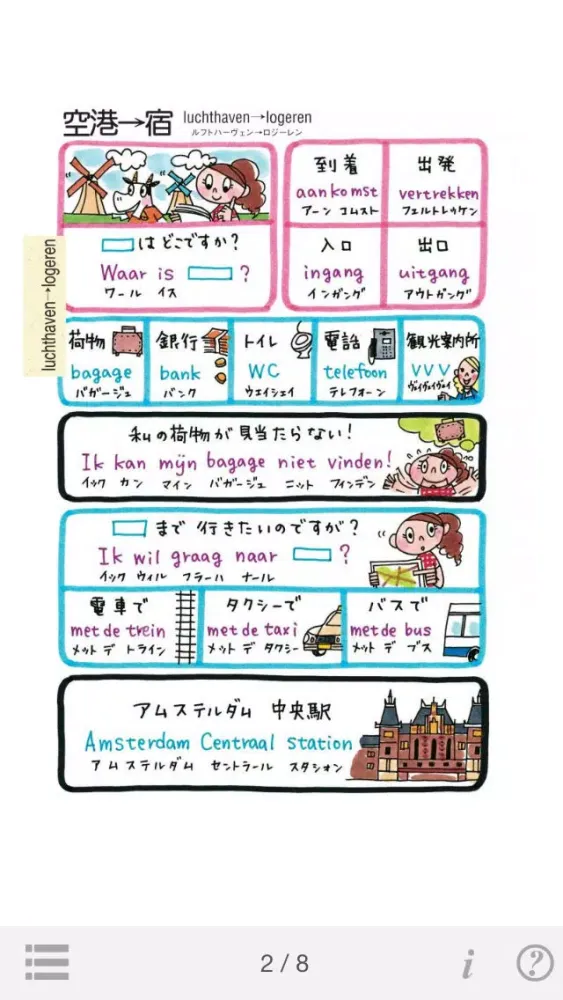 空港→宿 luchthaven→logeren
ルフトハーヴェン→ロジーレン
luchthaven→logeren
□はどこですか?
Waar is □ ?
ワール イス
到着
aankomst
アーン コムスト
出発
vertrekken
フェルトレッケン
入口
ingang
インガング
出口
uitgang
アウトガング
荷物
bagage
バガージュ
銀行
bank
バンク
トイレ
WC
ウェイシェイ
電話
telefoon
テレフォーン
観光案内所
VVV
ヴェイヴェイヴェイ
私の荷物が見当たらない!
Ik kan mijn bagage niet vinden!
イック カン マイン バガージュ ニット フィンデン
□まで行きたいのですが?
Ik wil graag naar □ ?
イック ウィル フラーハ ナール
電車で
met de trein
メット デ トライン
タクシーで
met de taxi
メット デ タクシー
バスで
met de bus
メット デ ブス
アムステルダム 中央駅
Amsterdam Centraal station
アムステルダム セントラール スタシオン
2 / 8
i
?